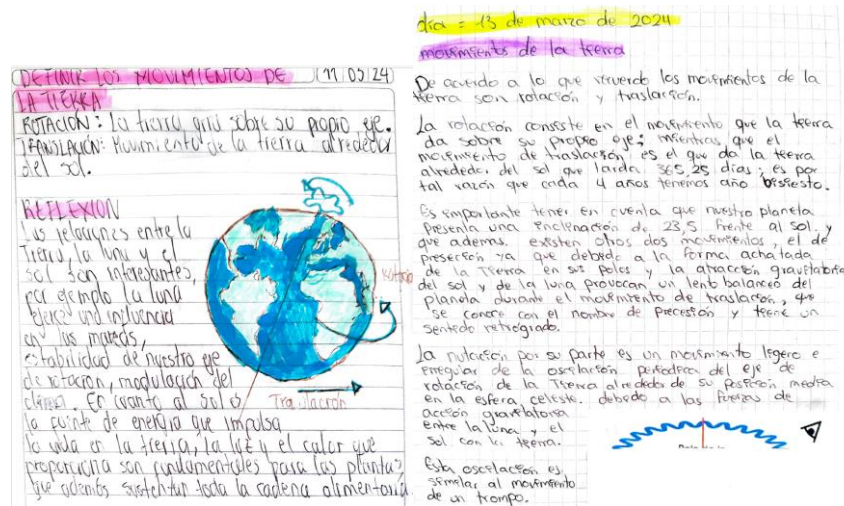 DEFINIR LOS MOVIMIENTOS DE
LA TIERRA
ROTACIÓN: La tierra gira sobre su propio eje.
TRANSLACIÓN: Movimiento de la tierra alrededor
del sol.
REFLEXIÓN
Las relaciones entre la
Tierra, la luna y el
sol son interesantes,
por ejemplo la luna
ejerce una influencia
en las mareas,
estabilidad de nuestro eje
de rotación, modulación del
clima. En cuanto al sol es
la fuente de energía que impulsa
la vida en la tierra, la luz y el calor que
proporciona son fundamentales para las plantas
que además sustentan toda la cadena alimentaria
Translación
día = 13 de marzo de 2024
movimientos de la tierra
De acuerdo a lo que recuerdo los movimientos de la
tierra son rotación y traslación.
La rotación consiste en el movimiento que la tierra
da sobre su propio eje; mientras que el
movimiento de traslación es el que da la tierra
alrededor del sol que tarda 365,25 días; es por
tal razón que cada 4 años tenemos año bisiesto.
Es importante tener en cuenta que nuestro planeta
presenta una inclinación de 23,5 frente al sol y
que ademas existen otros dos movimientos, el de
ya que debido a la forma achatada
de la Tierra en sus polos y la atracción gravitatoria
del sol y de la luna provocan un lento balanceo del
planeta durante el movimiento de traslación, que
se conoce con el nombre de Precesión y tiene un
sentido retrógrado.
La nutación por su parte es un movimiento ligero e
irregular de la oscilación periodica del eje de
rotación de la Tierra alrededor de su posición media
en la esfera celeste debido a las fuerzas de
acción gravitatoria
entre la luna y el
sol con la tierra.
Esta oscilación es
similar al movimiento
de un trompo.